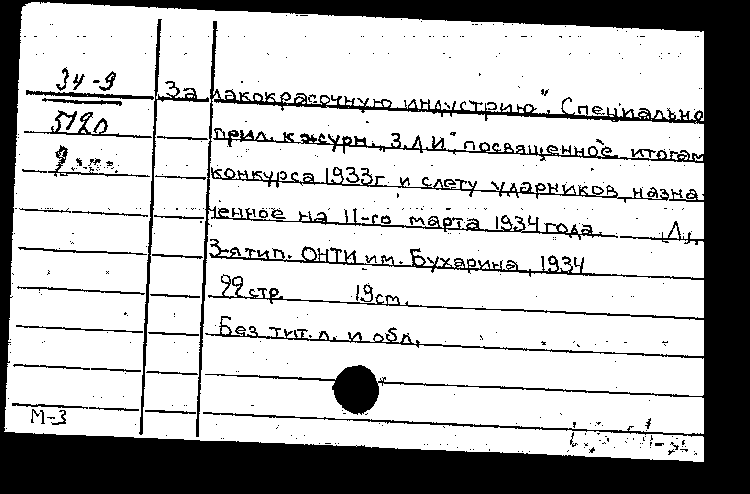 34-9
5120
За лакокрасочную индустрию". Специально
прил. к журн. „З.Л.И", посвященное итогам
конкурса 1933г. и слету ударников, назна-
ченное на 11-го марта 1934 года. Л.,
3-я тип. ОНТИ им. Бухарина, 1934
22 стр. 19 см.
Без тит. л. и обл.
М-3